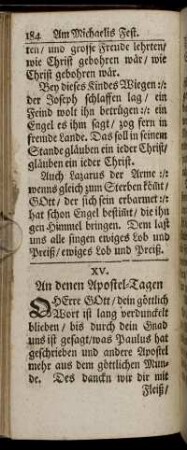 184 Am Michaelis Fest.
ten/ und grosse Freude lehrten/
wie Christ gebohren wär/ wie
Christ gebohren wär.
Bey dieses Kindes Wiegen :/:
der Joseph schlaffen lag/ ein
Feind wolt ihn betrügen :/: ein
Engel es ihm sagt/ zog fern in
fremde Lande. Das soll in seinem
Stande gläuben ein ieder Christ/
gläuben ein ieder Christ.
Auch Lazarus der Arme :/:
wenns gleich zum Sterben kömt/
GOtt/ der sich sein erbarmet :/:
hat schon Engel bestimt/ die ihn
gen Himmel bringen. Dem last
uns alle singen ewiges Lob und
Preiß/ ewiges Lob und Preiß.
XV.
An denen Apostel-Tagen
OHErre GOtt/ dein göttlich
Wort ist lang verdunckelt
blieben/ bis durch dein Gnad
uns ist gesagt/ was Paulus hat
geschrieben und andere Apostel
mehr aus dem göttlichen Mun-
de. Des danckn wir dir mit
Fleiß/